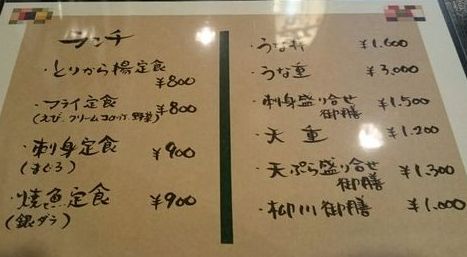 ランチ
・とりから揚定食
¥800
・フライ定食 ¥800
(えび、クリームコロッケ、野菜)
・刺身定食 ¥900
(まぐろ)
・焼魚定食 ¥900
(銀ダラ)
・うな丼 ¥1.600
・うな重 ¥3,000
・刺身盛り合せ ¥1,500
御膳
・天重 ¥1.200
・天ぷら盛り合せ ¥1.300
御膳
・柳川御膳 ¥1.000